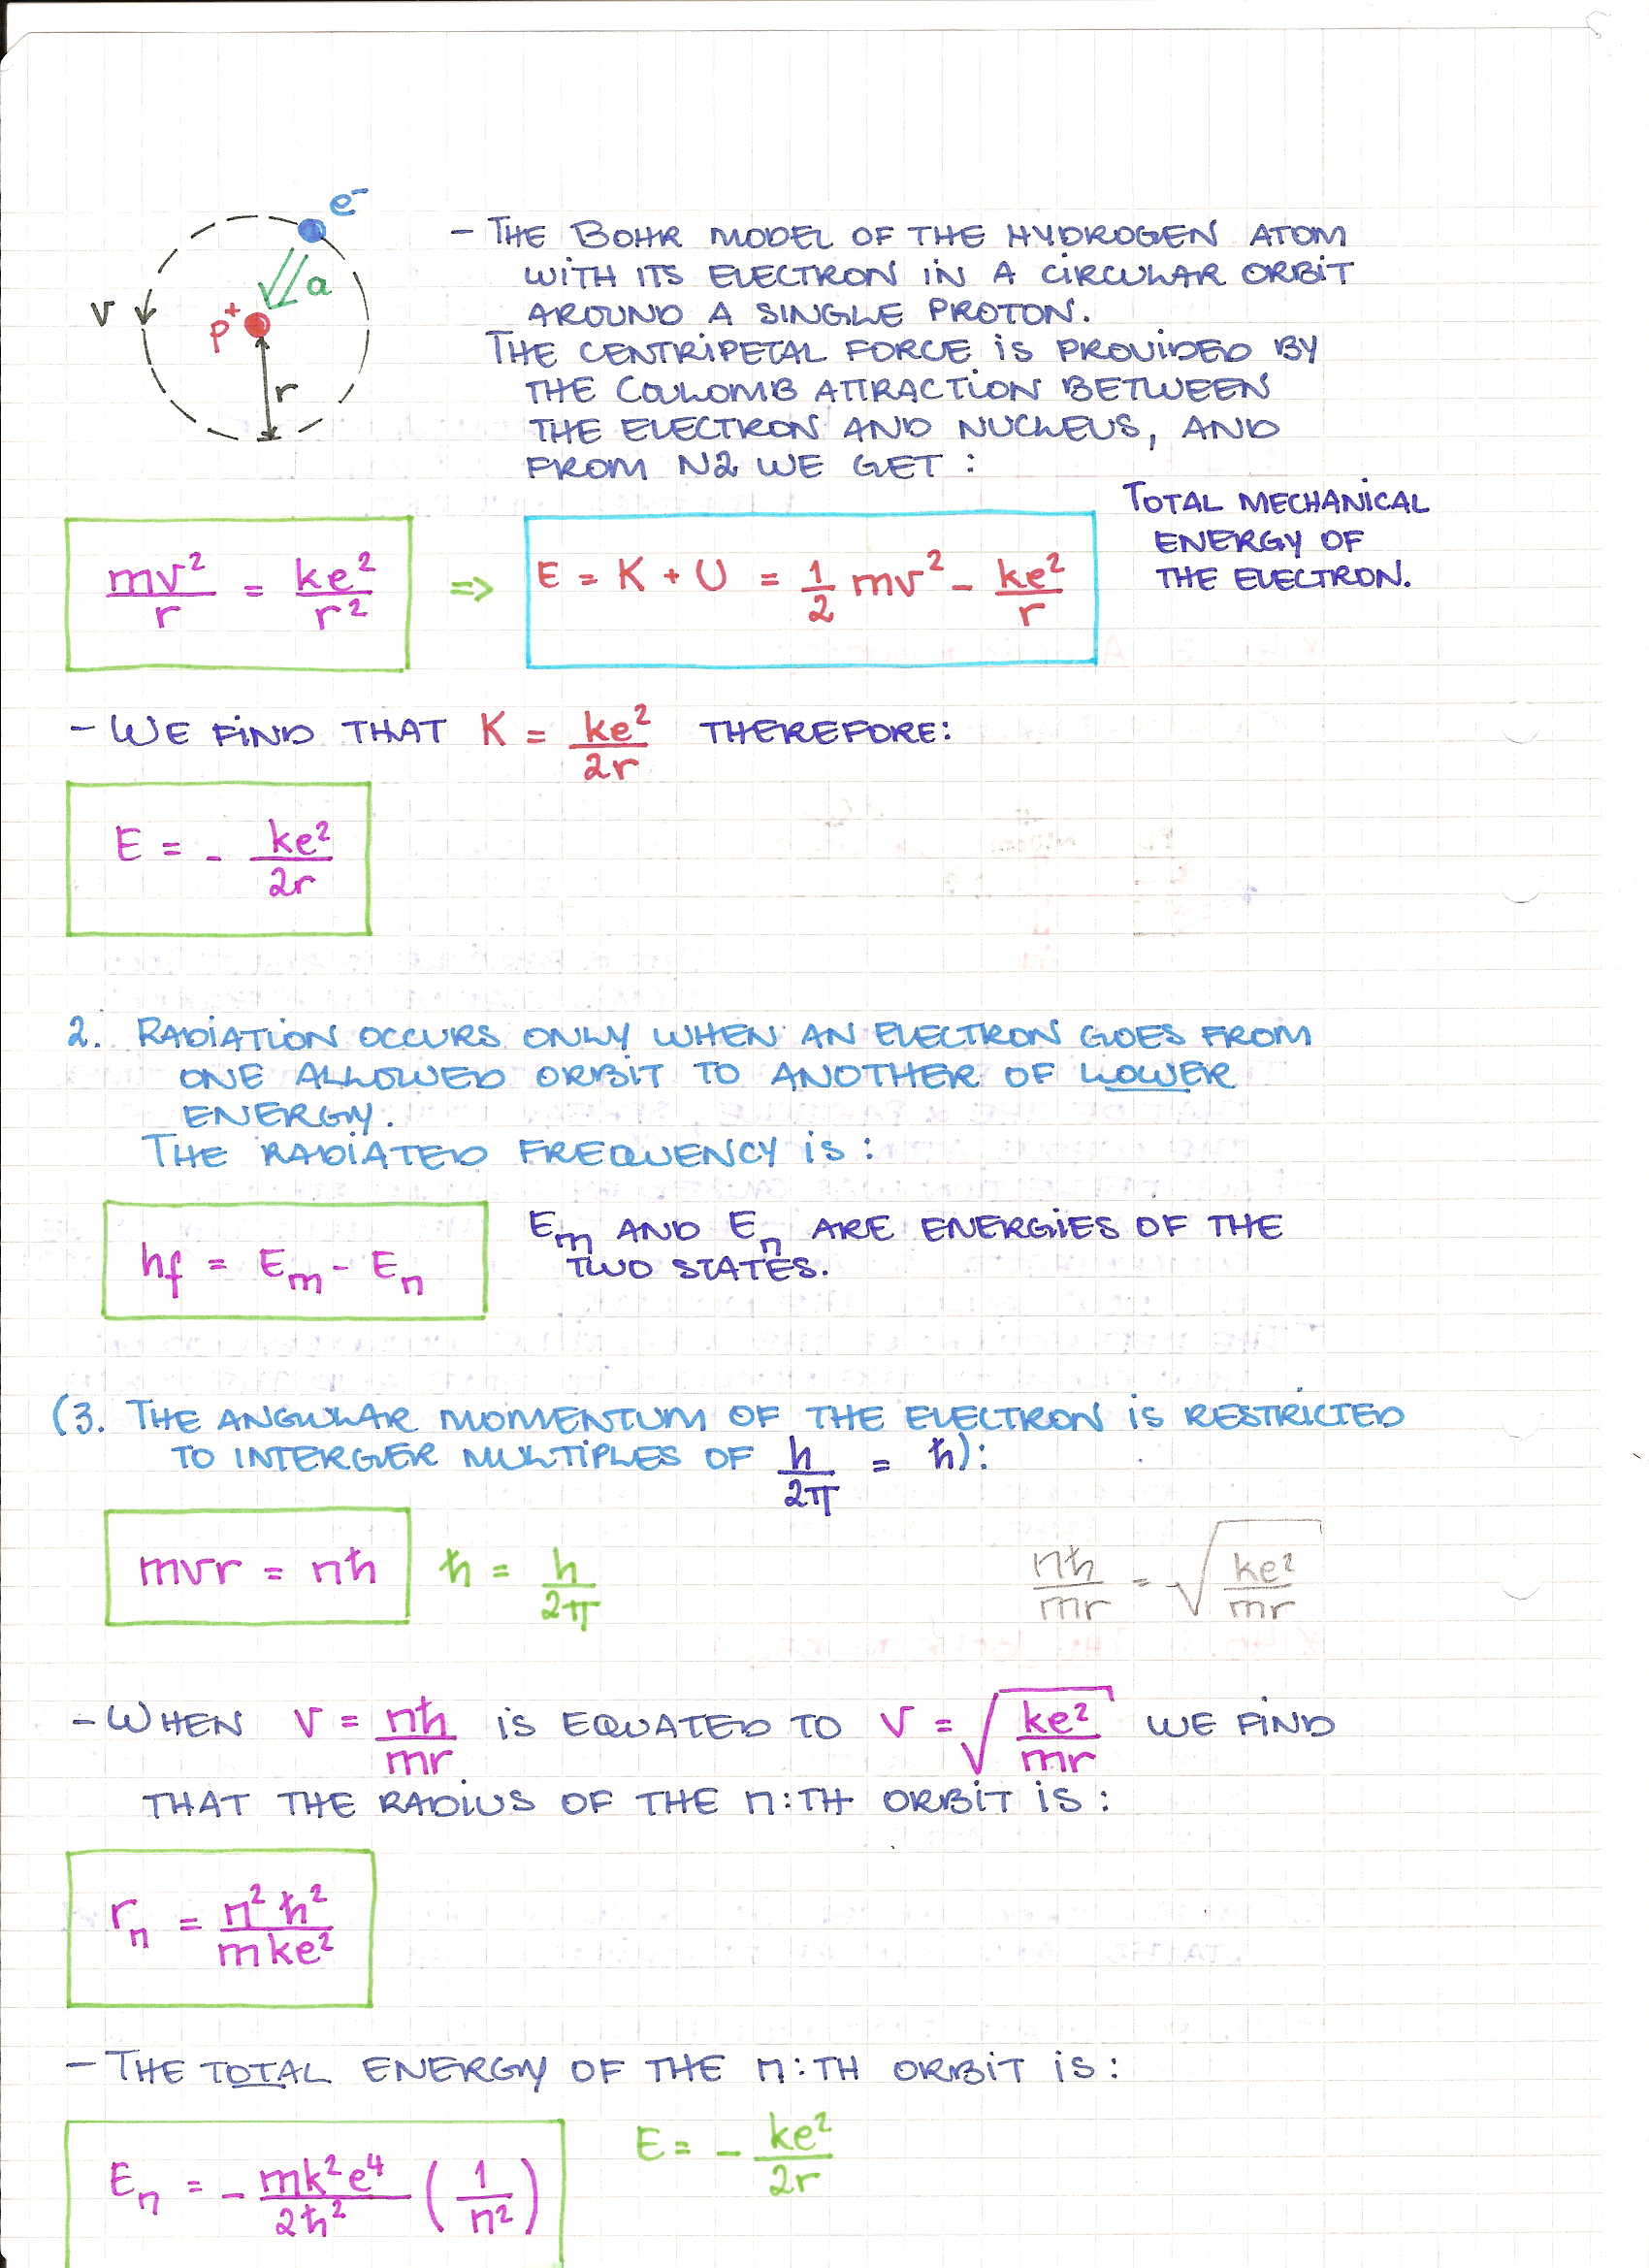 e⁻
- THE BOHR MODEL OF THE HYDROGEN ATOM
WITH ITS ELECTRON IN A CIRCULAR ORBIT
AROUND A SINGLE PROTON.
a
v
p⁺
r
THE CENTRIPETAL FORCE IS PROVIDED BY
THE COULOMB ATTRACTION BETWEEN
THE ELECTRON AND NUCLEUS, AND
FROM N2 WE GET :
mv²/r = ke²/r² => E = K + U = 1/2 mv² - ke²/r
TOTAL MECHANICAL
ENERGY OF
THE ELECTRON.
- WE FIND THAT K = ke²/2r THEREFORE:
E = - ke²/2r
2. RADIATION OCCURS ONLY WHEN AN ELECTRON GOES FROM
ONE ALLOWED ORBIT TO ANOTHER OF LOWER
ENERGY.
THE RADIATED FREQUENCY IS :
hf = Em - En
Em AND En ARE ENERGIES OF THE
TWO STATES.
(3. THE ANGULAR MOMENTUM OF THE ELECTRON IS RESTRICTED
TO INTERGER MULTIPLES OF h/2π = ħ):
mvr = nħ ħ = h/2π nħ/mr = √(ke²/mr)
- WHEN v = nħ/mr IS EQUATED TO v = √(ke²/mr) WE FIND
THAT THE RADIUS OF THE n:TH ORBIT IS :
rn = n²ħ²/mke²
- THE TOTAL ENERGY OF THE n:TH ORBIT IS :
En = - mk²e⁴/2ħ² (1/n²) E = - ke²/2r